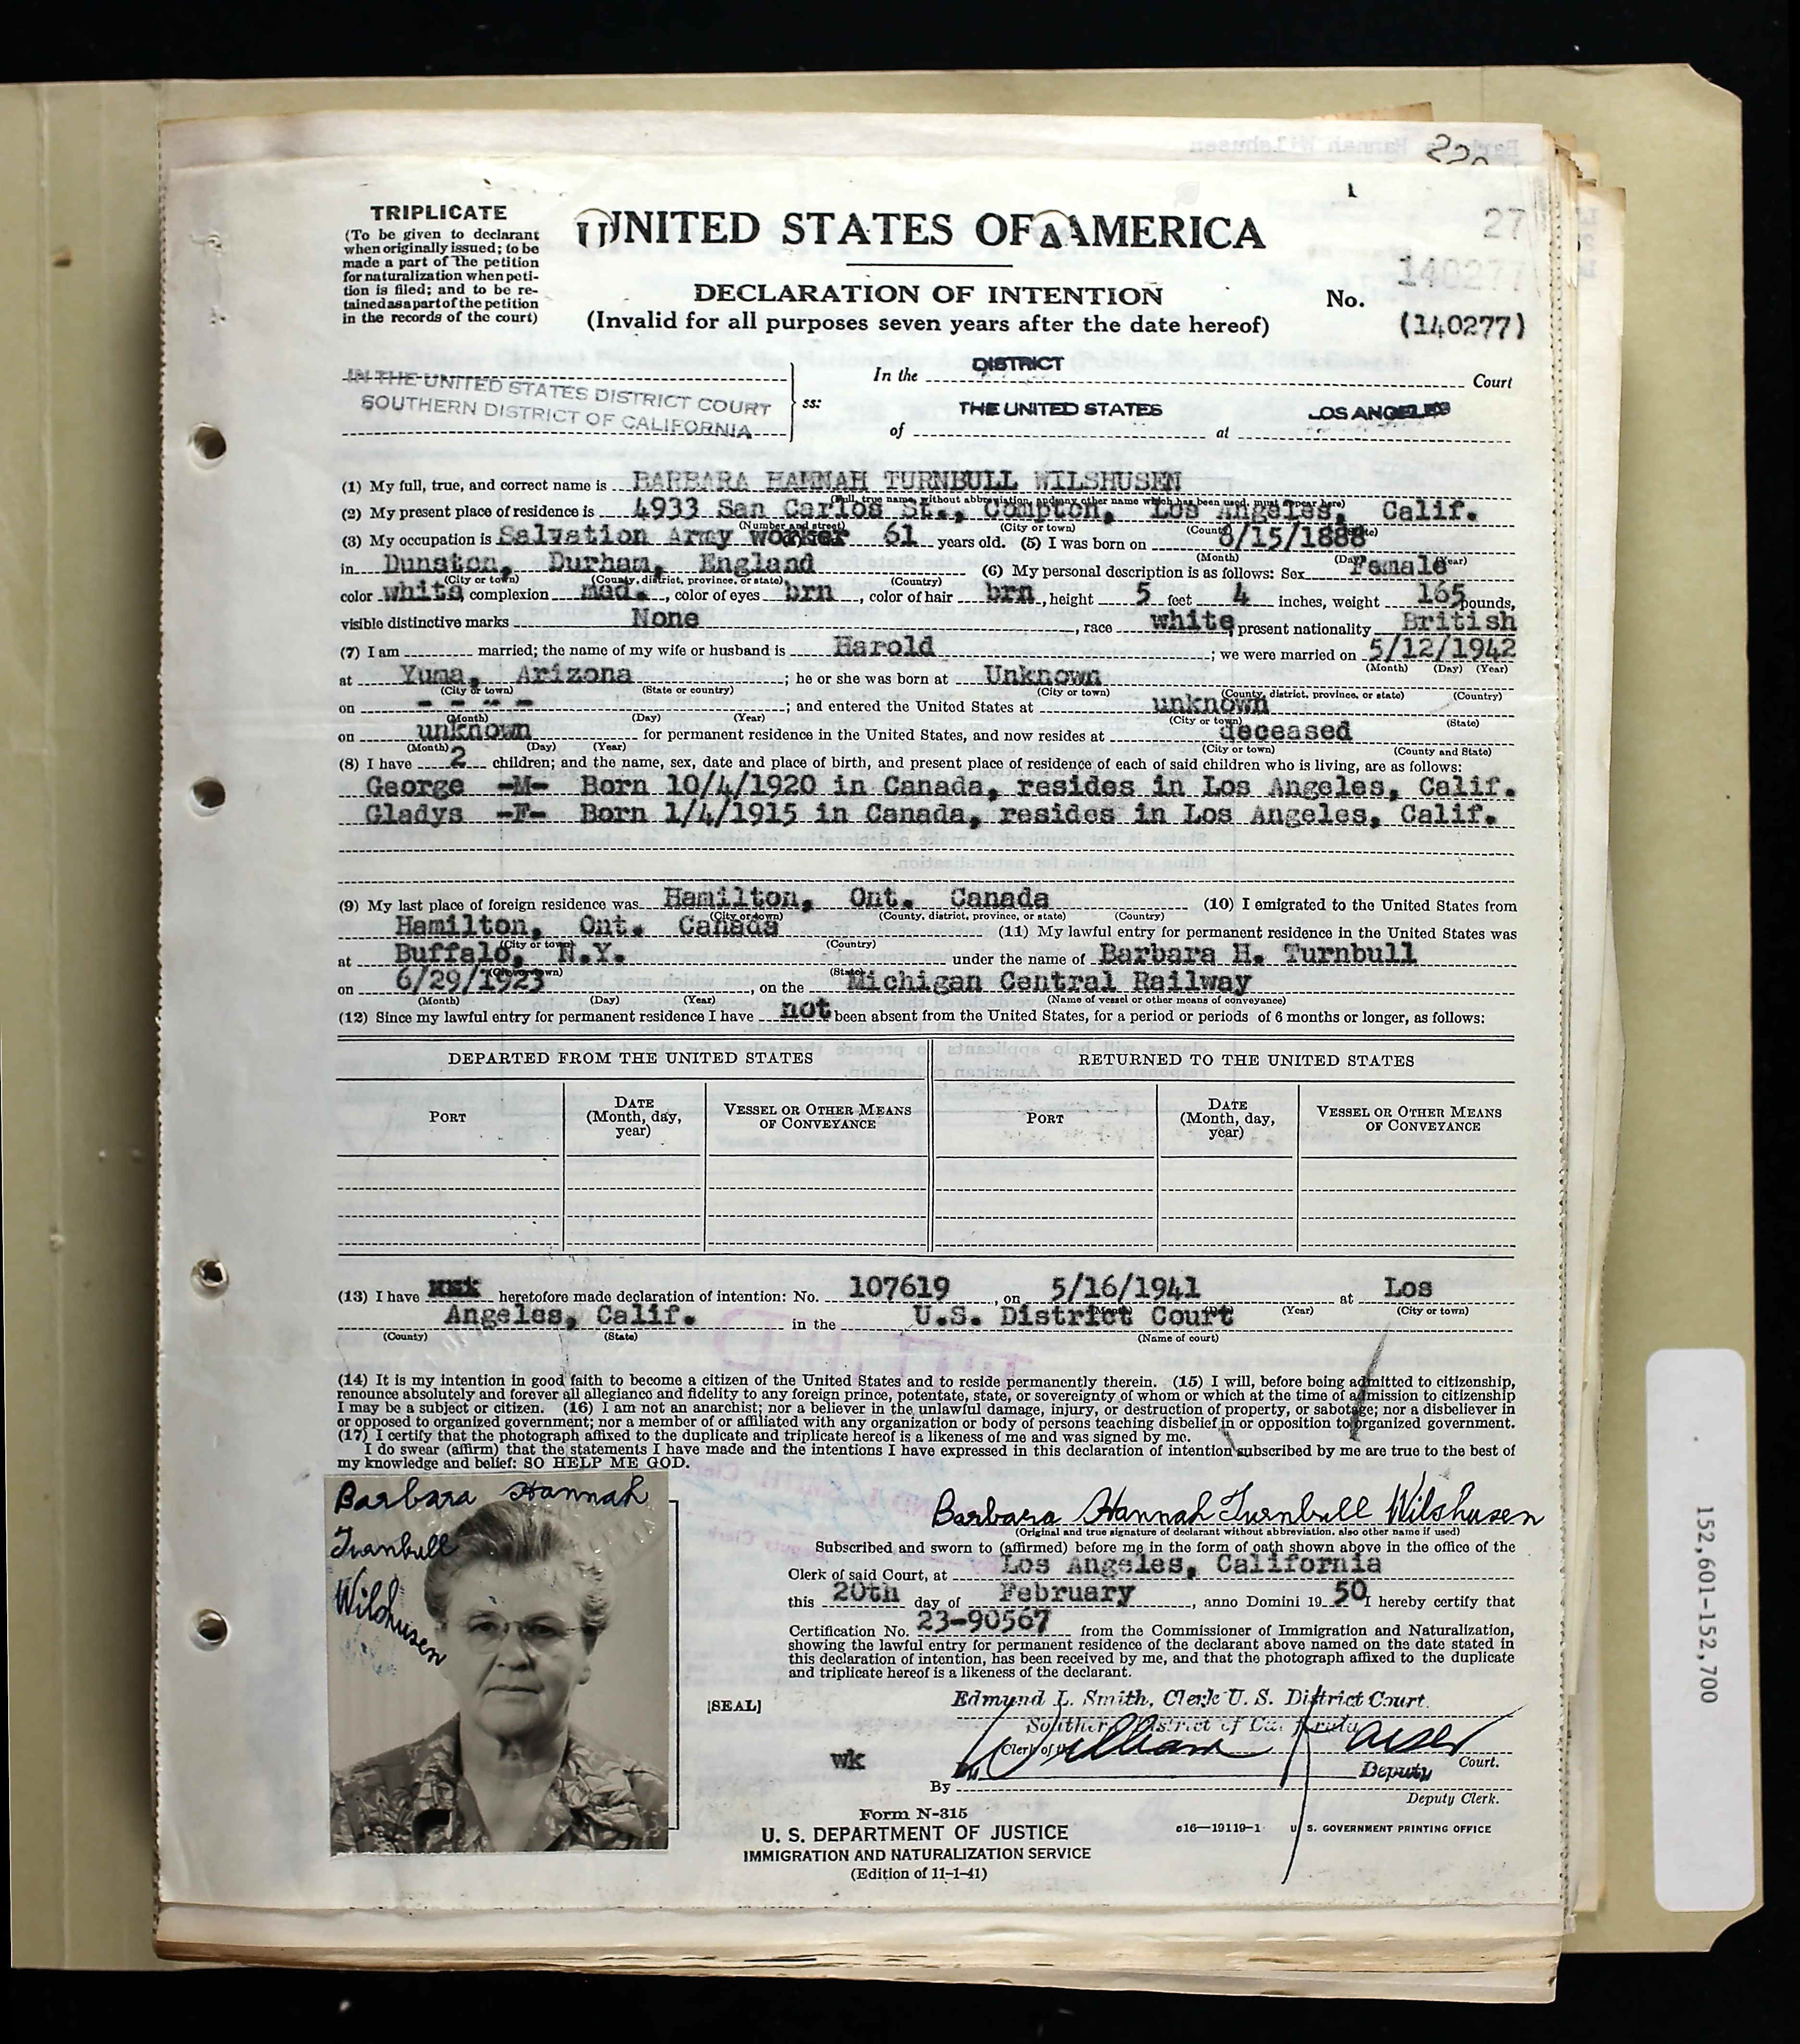 TRIPLICATE
(To be given to declarant
when originally issued; to be
made a part of the petition
for naturalization when peti-
tion is filed; and to be re-
tained as a part of the petition
in the records of the court)
UNITED STATES OF AMERICA
27
140277
DECLARATION OF INTENTION
No.
(Invalid for all purposes seven years after the date hereof)
(140277)
IN THE UNITED STATES DISTRICT COURT
SOUTHERN DISTRICT OF CALIFORNIA
ss:
In the DISTRICT Court
of THE UNITED STATES at LOS ANGELES
(1) My full, true, and correct name is BARBARA HANNAH TURNBULL WILSHUSEN
(Full, true name, without abbreviation, and any other name which has been used, must appear here)
(2) My present place of residence is 4933 San Carlos St., Compton, Los Angeles, Calif.
(Number and street) (City or town) (County) (State)
(3) My occupation is Salvation Army worker 61 years old. (5) I was born on 8/15/1888
(Month) (Day) (Year)
in Dunston, Durham, England (6) My personal description is as follows: Sex Female
(City or town) (County, district, province, or state) (Country)
color white, complexion med., color of eyes brn, color of hair brn, height 5 feet 4 inches, weight 165 pounds,
visible distinctive marks None, race white, present nationality British
(7) I am married; the name of my wife or husband is Harold; we were married on 5/12/1942
(Month) (Day) (Year)
at Yuma, Arizona; he or she was born at Unknown
(City or town) (State or country) (City or town) (County, district, province, or state) (Country)
on - - - -; and entered the United States at unknown
(Month) (Day) (Year) (City or town) (State)
on unknown for permanent residence in the United States, and now resides at deceased
(Month) (Day) (Year) (City or town) (County and State)
(8) I have 2 children; and the name, sex, date and place of birth, and present place of residence of each of said children who is living, are as follows:
George -M- Born 10/4/1920 in Canada, resides in Los Angeles, Calif.
Gladys -F- Born 1/4/1915 in Canada, resides in Los Angeles, Calif.
(9) My last place of foreign residence was Hamilton, Ont. Canada (10) I emigrated to the United States from
(City or town) (County, district, province, or state) (Country)
Hamilton, Ont. Canada (11) My lawful entry for permanent residence in the United States was
(City or town) (Country)
at Buffalo, N.Y. under the name of Barbara H. Turnbull
(City or town) (State)
on 6/29/1923, on the Michigan Central Railway
(Month) (Day) (Year) (Name of vessel or other means of conveyance)
(12) Since my lawful entry for permanent residence I have not been absent from the United States, for a period or periods of 6 months or longer, as follows:
DEPARTED FROM THE UNITED STATES
RETURNED TO THE UNITED STATES
PORT
DATE
(Month, day,
year)
VESSEL OR OTHER MEANS
OF CONVEYANCE
PORT
DATE
(Month, day,
year)
VESSEL OR OTHER MEANS
OF CONVEYANCE
(13) I have heretofore made declaration of intention: No. 107619, on 5/16/1941 at Los
(Month) (Day) (Year) (City or town)
Angeles, Calif. in the U.S. District Court
(County) (State) (Name of court)
(14) It is my intention in good faith to become a citizen of the United States and to reside permanently therein. (15) I will, before being admitted to citizenship,
renounce absolutely and forever all allegiance and fidelity to any foreign prince, potentate, state, or sovereignty of whom or which at the time of admission to citizenship
I may be a subject or citizen. (16) I am not an anarchist; nor a believer in the unlawful damage, injury, or destruction of property, or sabotage; nor a disbeliever in
or opposed to organized government; nor a member of or affiliated with any organization or body of persons teaching disbelief in or opposition to organized government.
(17) I certify that the photograph affixed to the duplicate and triplicate hereof is a likeness of me and was signed by me.
I do swear (affirm) that the statements I have made and the intentions I have expressed in this declaration of intention subscribed by me are true to the best of
my knowledge and belief: SO HELP ME GOD.
Barbara Hannah
Turnbull
Wilshusen
Barbara Hannah Turnbull Wilshusen
(Original and true signature of declarant without abbreviation, also other name if used)
Subscribed and sworn to (affirmed) before me in the form of oath shown above in the office of the
Clerk of said Court, at Los Angeles, California
this 20th day of February, anno Domini 19 50 I hereby certify that
Certification No. 23-90567 from the Commissioner of Immigration and Naturalization,
showing the lawful entry for permanent residence of the declarant above named on the date stated in
this declaration of intention, has been received by me, and that the photograph affixed to the duplicate
and triplicate hereof is a likeness of the declarant.
[SEAL]
Edmund L. Smith, Clerk U. S. District Court.
Southern District of California
Clerk of the Court.
wk
William
Deputy
By
Deputy Clerk.
Form N-315
U. S. DEPARTMENT OF JUSTICE
IMMIGRATION AND NATURALIZATION SERVICE
(Edition of 11-1-41)
c16—19119-1 U. S. GOVERNMENT PRINTING OFFICE
152,601-152,700